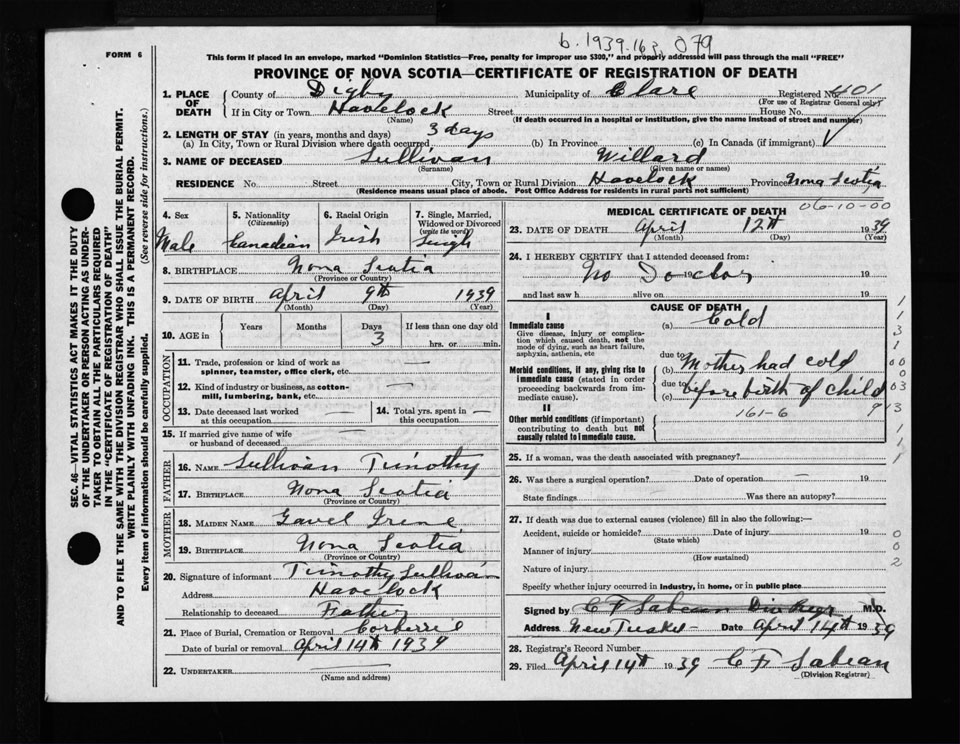 b. 1939.163.079
FORM 6
This form if placed in an envelope, marked "Dominion Statistics—Free, penalty for improper use $300," and properly addressed will pass through the mail "FREE"
PROVINCE OF NOVA SCOTIA—CERTIFICATE OF REGISTRATION OF DEATH
1. PLACE OF DEATH County of Digby Municipality of Clare Registered No. 401
(For use of Registrar General only)
If in City or Town Havelock Street House No.
(Name) (If death occurred in a hospital or institution, give the name instead of street and number)
2. LENGTH OF STAY (in years, months and days) 3 days
(a) In City, Town or Rural Division where death occurred (b) In Province (c) In Canada (if immigrant)
3. NAME OF DECEASED Sullivan Willard
(Surname) (Given name or names)
RESIDENCE No. Street City, Town or Rural Division Havelock Province Nova Scotia
(Residence means usual place of abode. Post Office Address for residents in rural parts not sufficient)
4. Sex Male
5. Nationality (Citizenship) Canadian
6. Racial Origin Irish
7. Single, Married, Widowed or Divorced (write the word) Single
8. BIRTHPLACE Nova Scotia
(Province or Country)
9. DATE OF BIRTH April 9th 1939
(Month) (Day) (Year)
10. AGE in Years Months Days 3 If less than one day old hrs. or min.
OCCUPATION
11. Trade, profession or kind of work as spinner, teamster, office clerk, etc. —
12. Kind of industry or business, as cotton-mill, lumbering, bank, etc. —
13. Date deceased last worked at this occupation —
14. Total yrs. spent in this occupation —
15. If married give name of wife or husband of deceased
FATHER
16. NAME Sullivan Timothy
17. BIRTHPLACE Nova Scotia
(Province or Country)
MOTHER
18. MAIDEN NAME Gavel Irene
19. BIRTHPLACE Nova Scotia
(Province or Country)
20. Signature of informant Timothy Sullivan
Address Havelock
Relationship to deceased Father
21. Place of Burial, Cremation or Removal Corberrie
Date of burial or removal April 14th 1939
22. UNDERTAKER
(Name and address)
MEDICAL CERTIFICATE OF DEATH 06-10-00
23. DATE OF DEATH April 12th 1939
(Month) (Day) (Year)
24. I HEREBY CERTIFY that I attended deceased from:
No Doctor 19 19
and last saw h alive on 19
CAUSE OF DEATH
I
Immediate cause (a) Cold
Give disease, injury or complication which caused death, not the mode of dying, such as heart failure, asphyxia, asthenia, etc
due to
Morbid conditions, if any, giving rise to immediate cause (stated in order proceeding backwards from immediate cause). (b) Mother had cold
due to
(c) before birth of child
II
Other morbid conditions (if important) contributing to death but not causally related to immediate cause. 161-6
25. If a woman, was the death associated with pregnancy?
26. Was there a surgical operation? Date of operation 19
State findings Was there an autopsy?
27. If death was due to external causes (violence) fill in also the following:—
Accident, suicide or homicide? Date of injury 19
(State which)
Manner of injury
(How sustained)
Nature of injury
Specify whether injury occurred in industry, in home, or in public place
Signed by C F Sabean Div Regr M.D.
Address New Tusket Date April 14th 1939
28. Registrar's Record Number
29. Filed April 14th 1939 C F Sabean
(Division Registrar)
SEC. 46—VITAL STATISTICS ACT MAKES IT THE DUTY
OF THE UNDERTAKER OR PERSON ACTING AS UNDER-
TAKER TO OBTAIN ALL THE PARTICULARS REQUIRED
IN THE "CERTIFICATE OF REGISTRATION OF DEATH"
AND TO FILE THE SAME WITH THE DIVISION REGISTRAR WHO SHALL ISSUE THE BURIAL PERMIT.
WRITE PLAINLY WITH UNFADING INK. THIS IS A PERMANENT RECORD.
Every item of information should be carefully supplied. (See reverse side for instructions.)